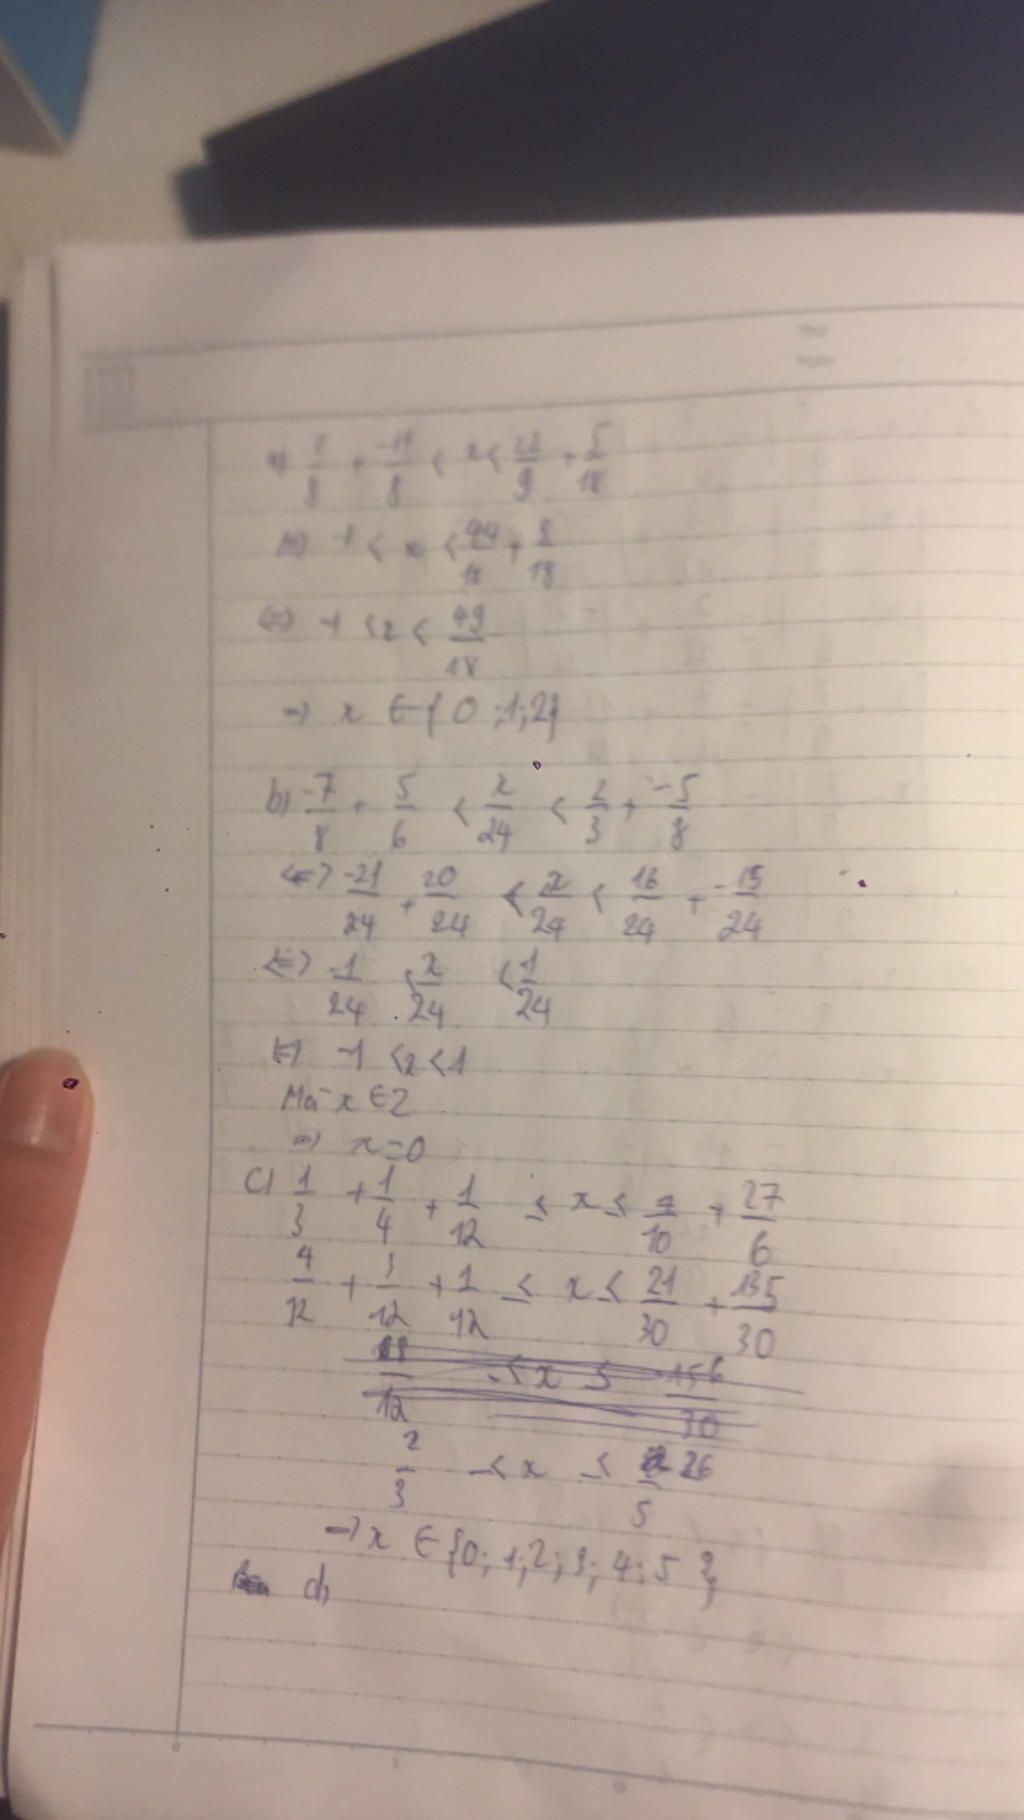 a) 3/8 + -11/8 < x < 22/9 + 5/18
<=> -1 < x < 44/18 + 5/18
<=> -1 < x < 49/18
=> x ∈ { 0 ;1;2}
b) -7/8 + 5/6 < x/24 < 2/3 + -5/8
<=> -21/24 + 20/24 < x/24 < 16/24 + -15/24
<=> -1/24 < x/24 < 1/24
<=> -1 < x < 1
Mà x ∈ Z
=> x = 0
c) 1/3 + 1/4 + 1/12 ≤ x ≤ 7/10 + 27/6
4/12 + 3/12 + 1/12 ≤ x ≤ 21/30 + 135/30
2/3 ≤ x ≤ 26/5
=> x ∈ {0; 1; 2; 3; 4; 5 }
d)